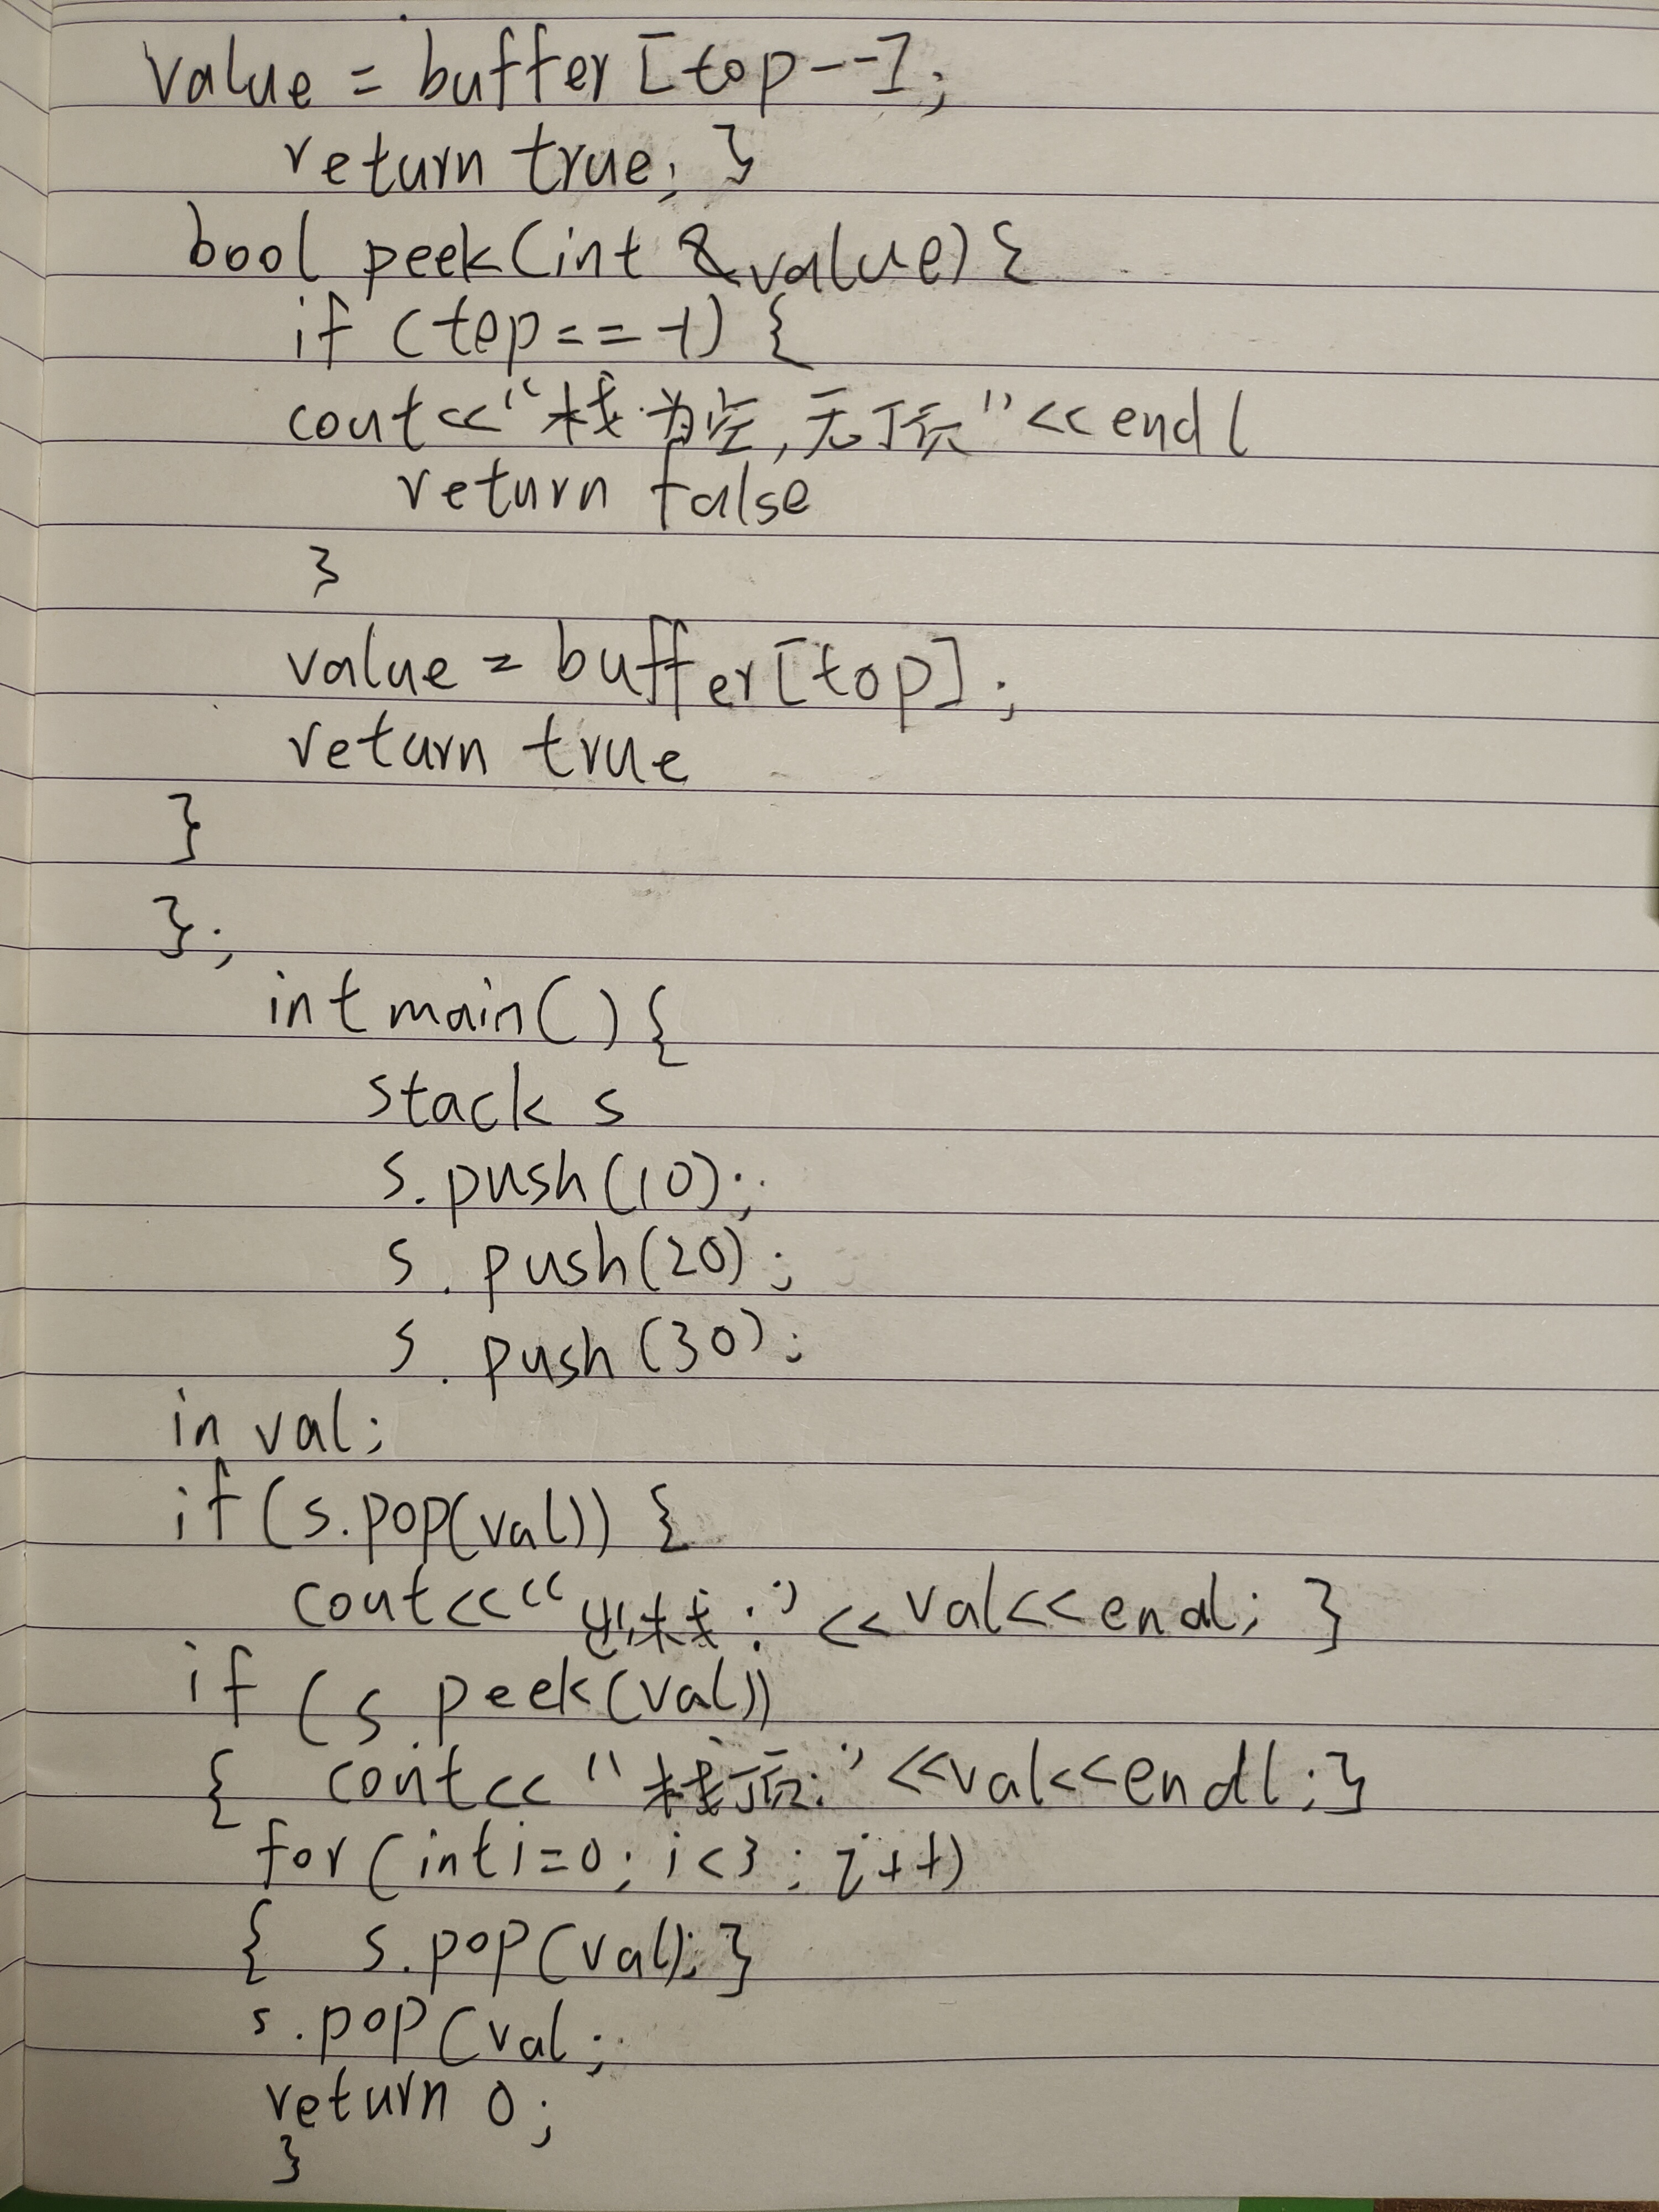 value = buffer [top--];
return true; }
bool peek(int &value){
if (top==-1) {
cout<<"栈为空,无顶"<<endl
return false
}
value = buffer[top];
return true
}
};
int main() {
stack s
s.push(10);
s.push(20);
s.push(30);
in val;
if(s.pop(val)) {
cout<<"出栈:"<<val<<endl; }
if (s.peek(val))
{ cout<<"栈顶:"<<val<<endl;}
for(int i=0; i<3; i++)
{ s.pop(val); }
s.pop(val;
return 0;
}